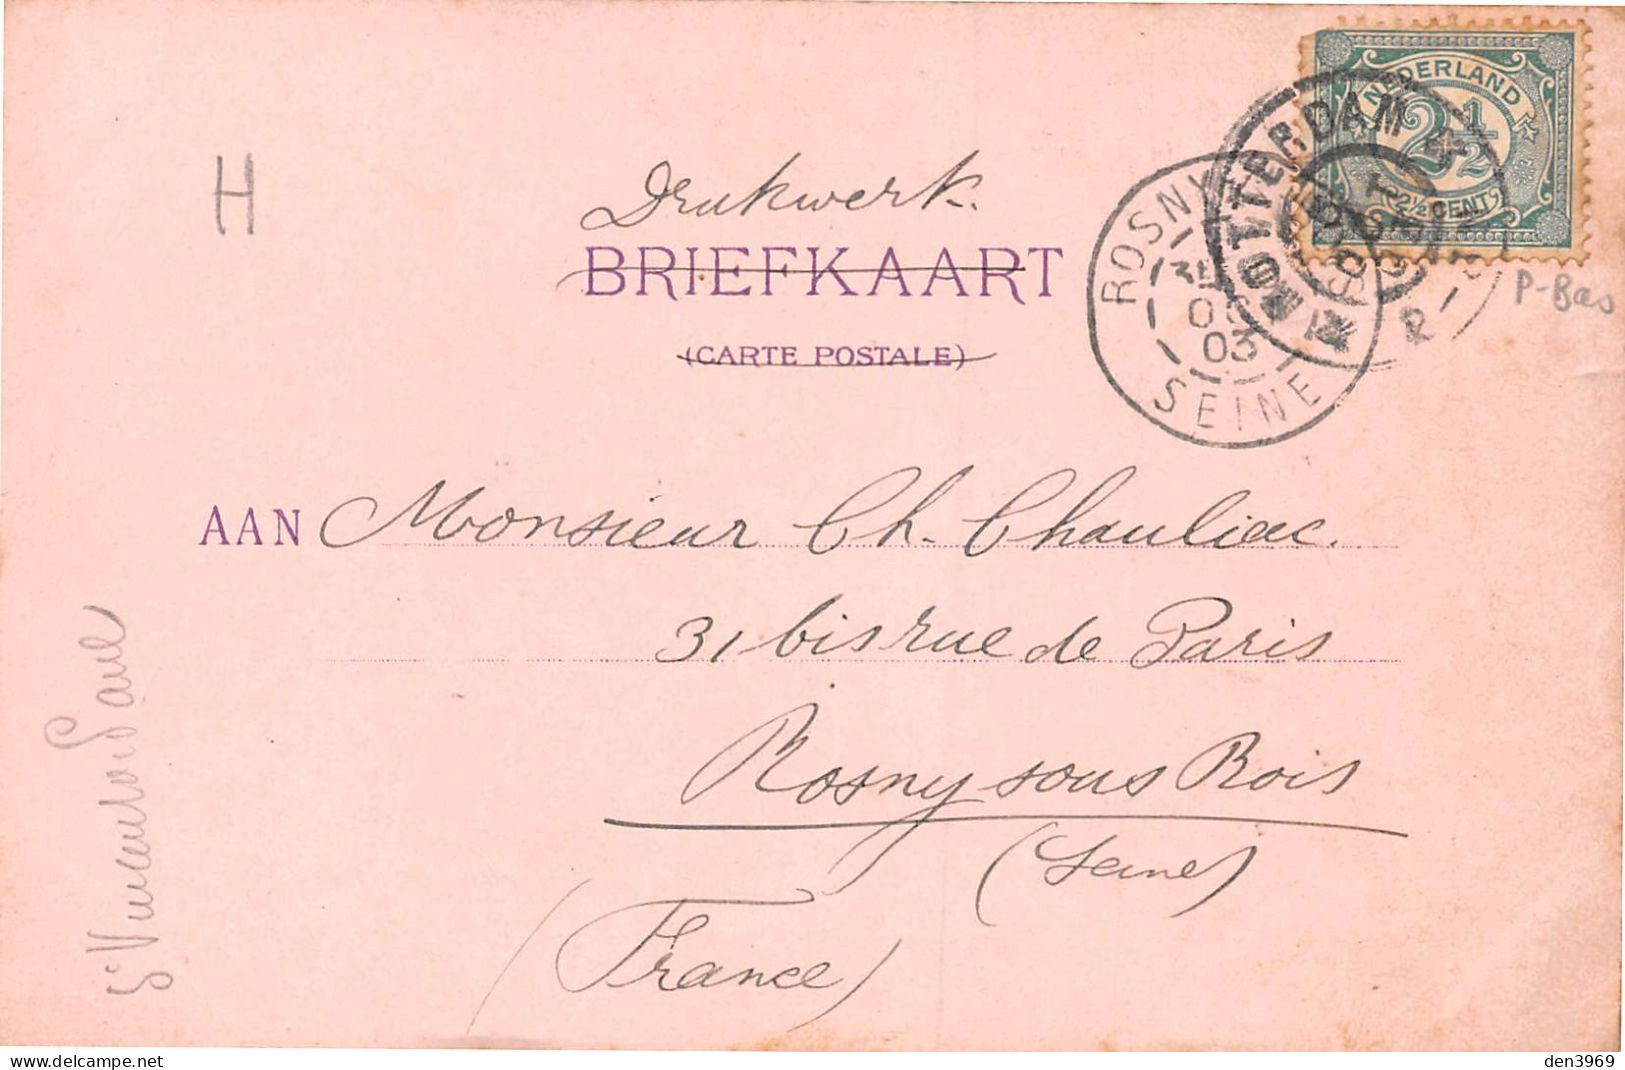 H
Drukwerk.
BRIEFKAART
(CARTE POSTALE)
NEDERLAND
2½
2½ CENT
ROTTERDAM
ROSNY
03
SEINE
P-Bas
AAN Monsieur Ch. Chauliac.
31 bis rue de Paris
Rosny sous Bois
(Seine)
(France)
St Vincent de Paul
delcampe.net
den3969